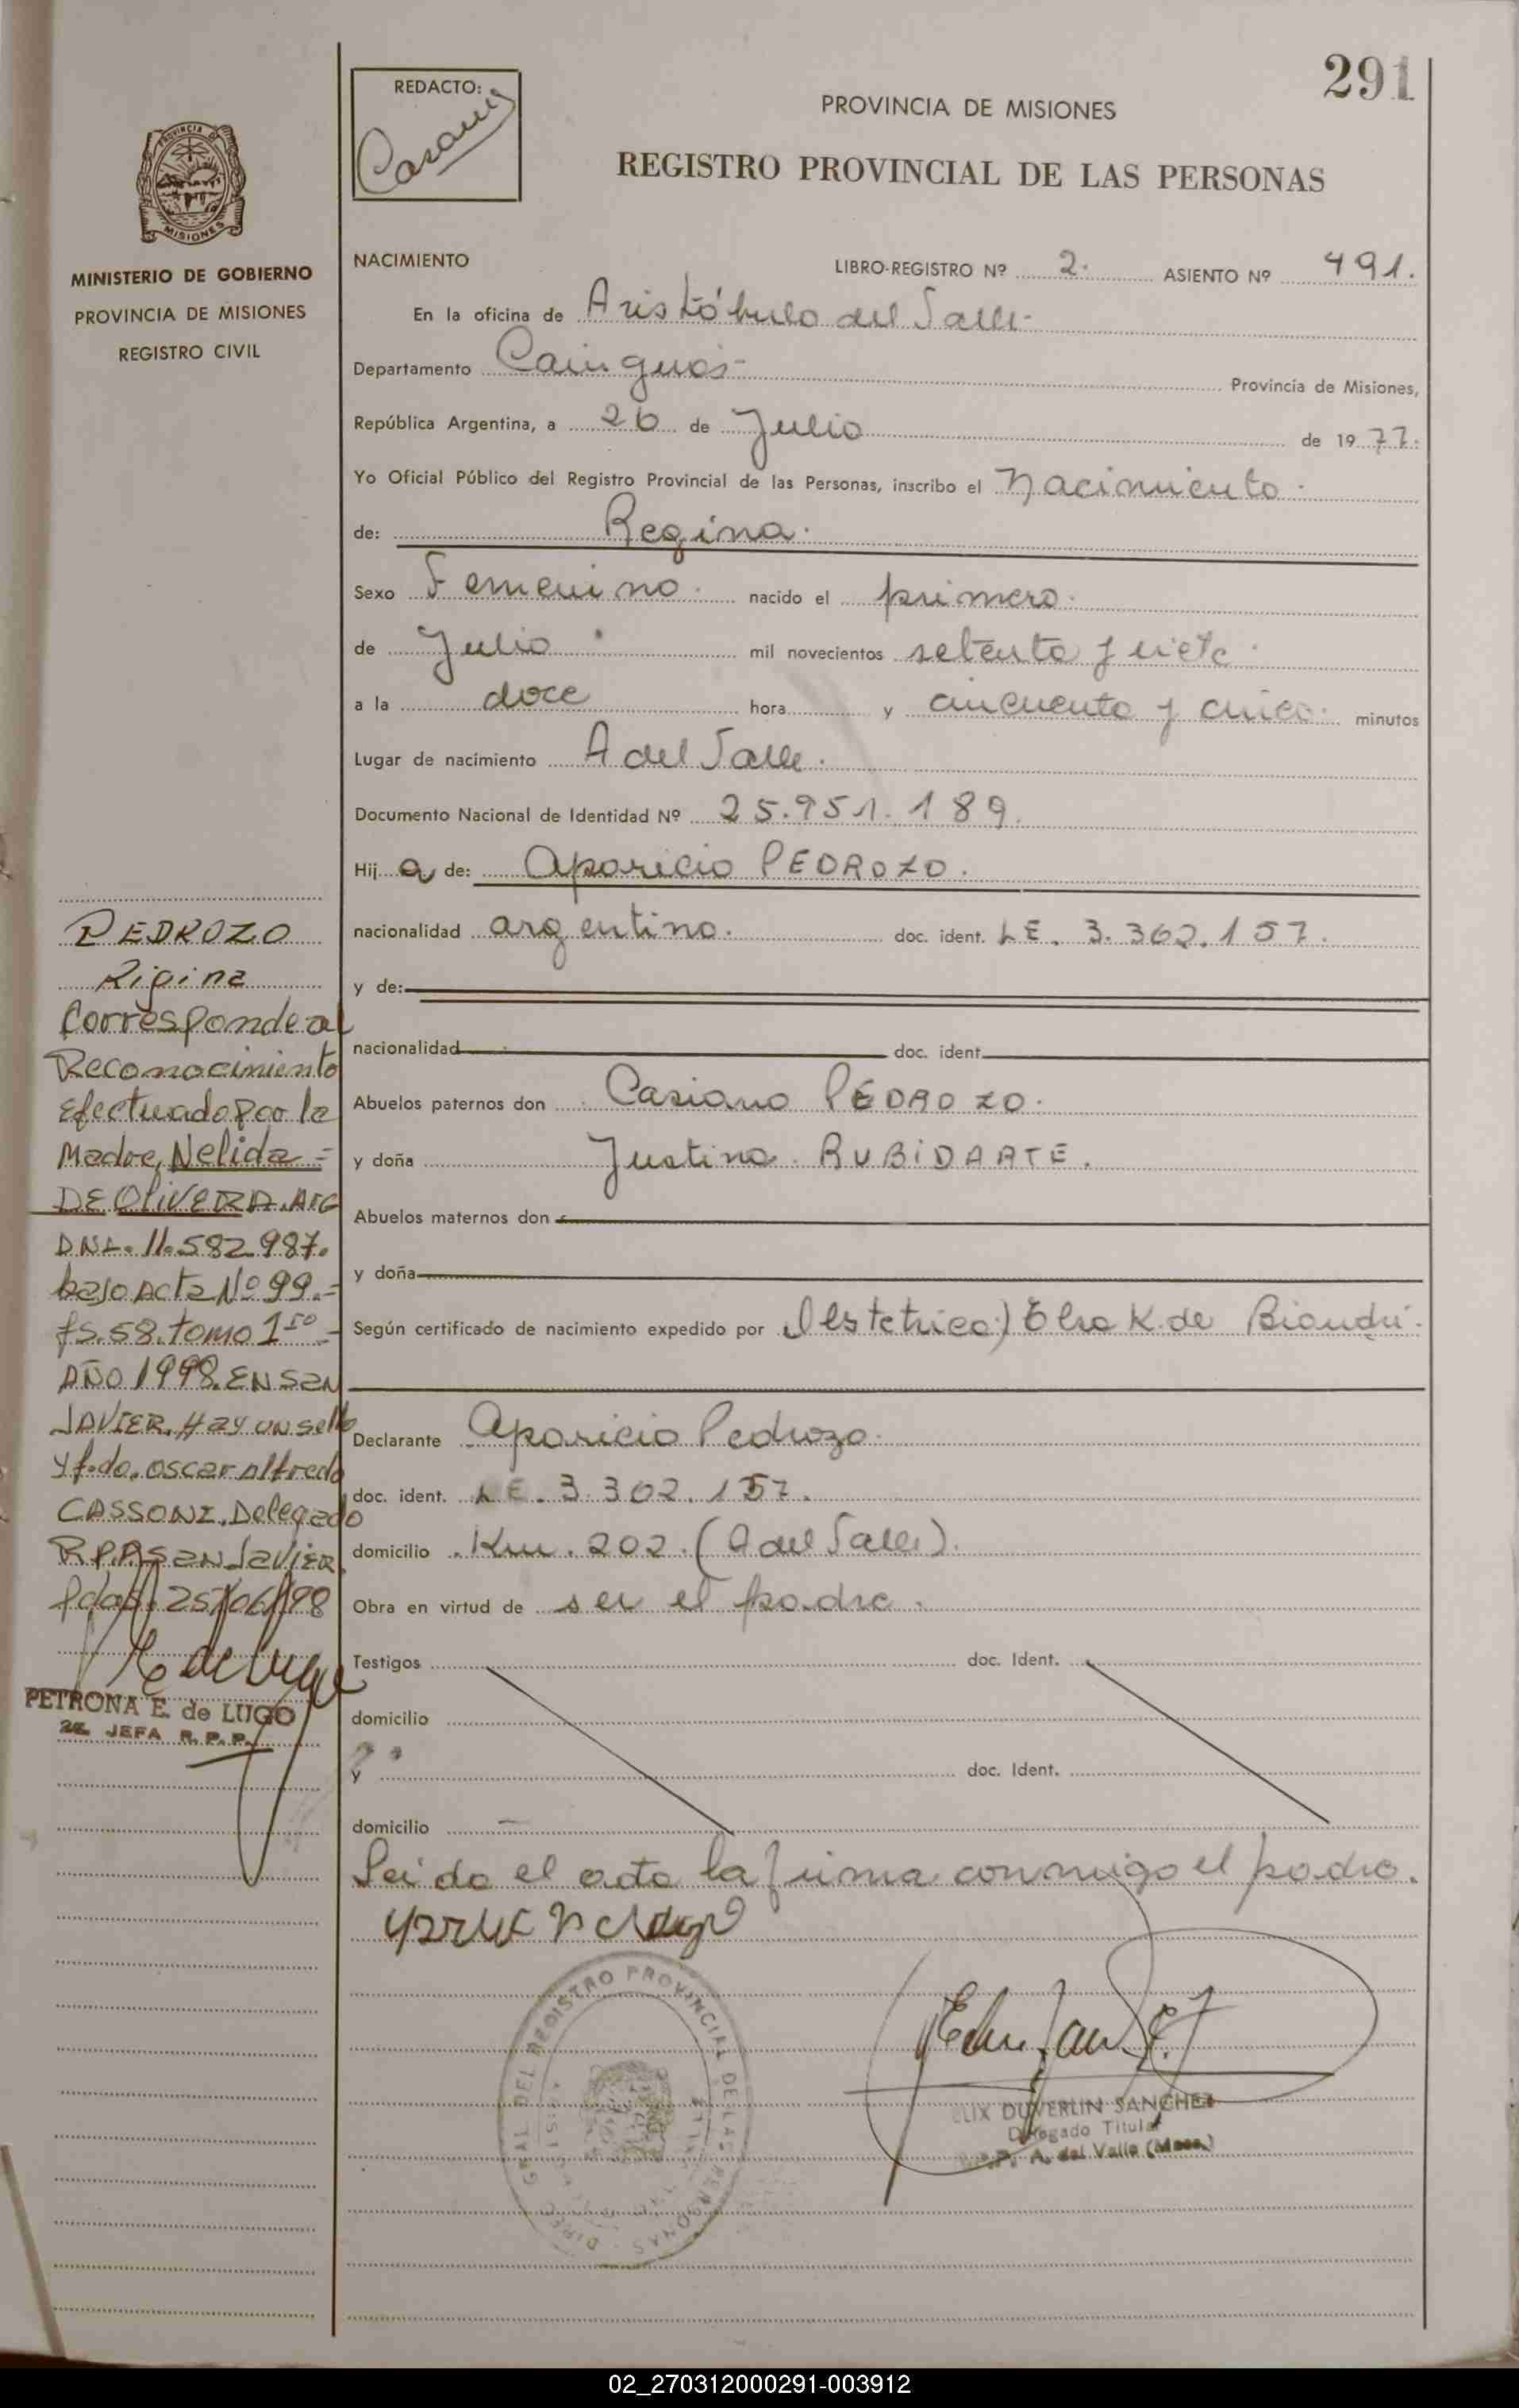 291
REDACTO:
PROVINCIA DE MISIONES
REGISTRO PROVINCIAL DE LAS PERSONAS
MISIONES
MINISTERIO DE GOBIERNO
PROVINCIA DE MISIONES
REGISTRO CIVIL
NACIMIENTO LIBRO-REGISTRO Nº 2. ASIENTO Nº 491.
En la oficina de Aristóbulo del Valle-
Departamento Cainguás- Provincia de Misiones,
República Argentina, a 26 de Julio de 1977.
Yo Oficial Público del Registro Provincial de las Personas, inscribo el Nacimiento.
de: Regina.
Sexo Femenino. nacido el primero.
de Julio. mil novecientos setenta y siete.
a la doce hora y cincuenta y cinco. minutos
Lugar de nacimiento A del Valle.
Documento Nacional de Identidad Nº 25.951.189.
Hij a de: Aparicio PEDROZO.
nacionalidad argentino. doc. ident. LE. 3.302.157.
y de:
nacionalidad doc. ident.
Abuelos paternos don Casiano PEDROZO.
y doña Justina RUBIDARTE.
Abuelos maternos don
y doña
Según certificado de nacimiento expedido por Elsa K. de
Declarante Aparicio Pedrozo.
doc. ident. LE. 3.302.157.
domicilio Km. 202. (A del Valle).
Obra en virtud de ser el padre.
Testigos doc. Ident.
domicilio
y doc. Ident.
domicilio
Leida el acta la firma conmigo el padre.
PEDROZO
Rigina
Corresponde al
Reconocimiento
Efectuado por la
Madre, Nelida =
DE OLIVERA. ARG
DNI. 11.582.987.
bajo Acta Nº 99.=
fs. 58. tomo 1ro -
AÑO 1998. EN San
JAVIER. Hay un sello
y fdo. oscar Alfredo
CASSONI, Delegado
R.P.P. San Javier
Pdas. 25/06/98
PETRONA E. de LUGO
2ª JEFA R. P. P.
DUVERLIN SANCHEZ
Delegado Titular
A. del Valle (Mnes.)
REGISTRO PROVINCIAL DE LAS PERSONAS
02_270312000291-003912